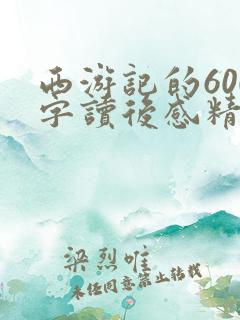 西游記的600
字讀後感精
梁烈唯
未经同意禁止转载